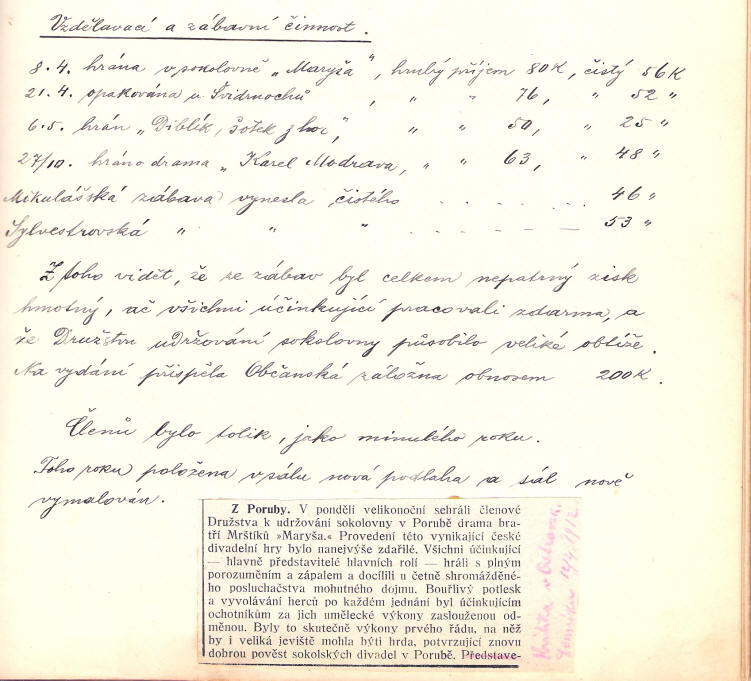 Vzdělavací a zábavní činnost.
8.4. hrána v sokolovně „Maryša", hrubý příjem 80K, čistý 56K
21.4. opakována u Švidrnochů „ „ 76, „ 52 „
6.5. hrán „Diblík, šotek z hor", „ „ 50, „ 25 „
27/10. hráno drama „Karel Modrava, „ „ 63, „ 48 „
Mikulášská zábava vynesla čistého . . . . . . 46 „
Sylvestrovská „ „ „ . . . . . . 53 „
Z toho vidět, že ze zábav byl celkem nepatrný zisk
hmotný, ač všichni účinkující pracovali zdarma, a
že Družstvu udržování sokolovny působilo veliké obtíže.
Na vydání přispěla Občanská záložna obnosem 200K.
Členů bylo tolik, jako minulého roku.
Toho roku položena v sálu nová podlaha a sál nově
vymalován.
Z Poruby. V pondělí velikonoční sehráli členové
Družstva k udržování sokolovny v Porubě drama bra-
tří Mrštíků »Maryša.« Provedení této vynikající české
divadelní hry bylo nanejvýše zdařilé. Všichni účinkující
— hlavně představitelé hlavních rolí — hráli s plným
porozuměním a zápalem a docílili u četně shromážděného
posluchačstva mohutného dojmu. Bouřlivý potlesk
a vyvolávání herců po každém jednání byl účinkujícím
ochotníkům za jich umělecké výkony zaslouženou od-
měnou. Byly to skutečně výkony prvého řádu, na něž
by i veliká jeviště mohla býti hrda, potvrzující znovu
dobrou pověst sokolských divadel v Porubě. Představe-